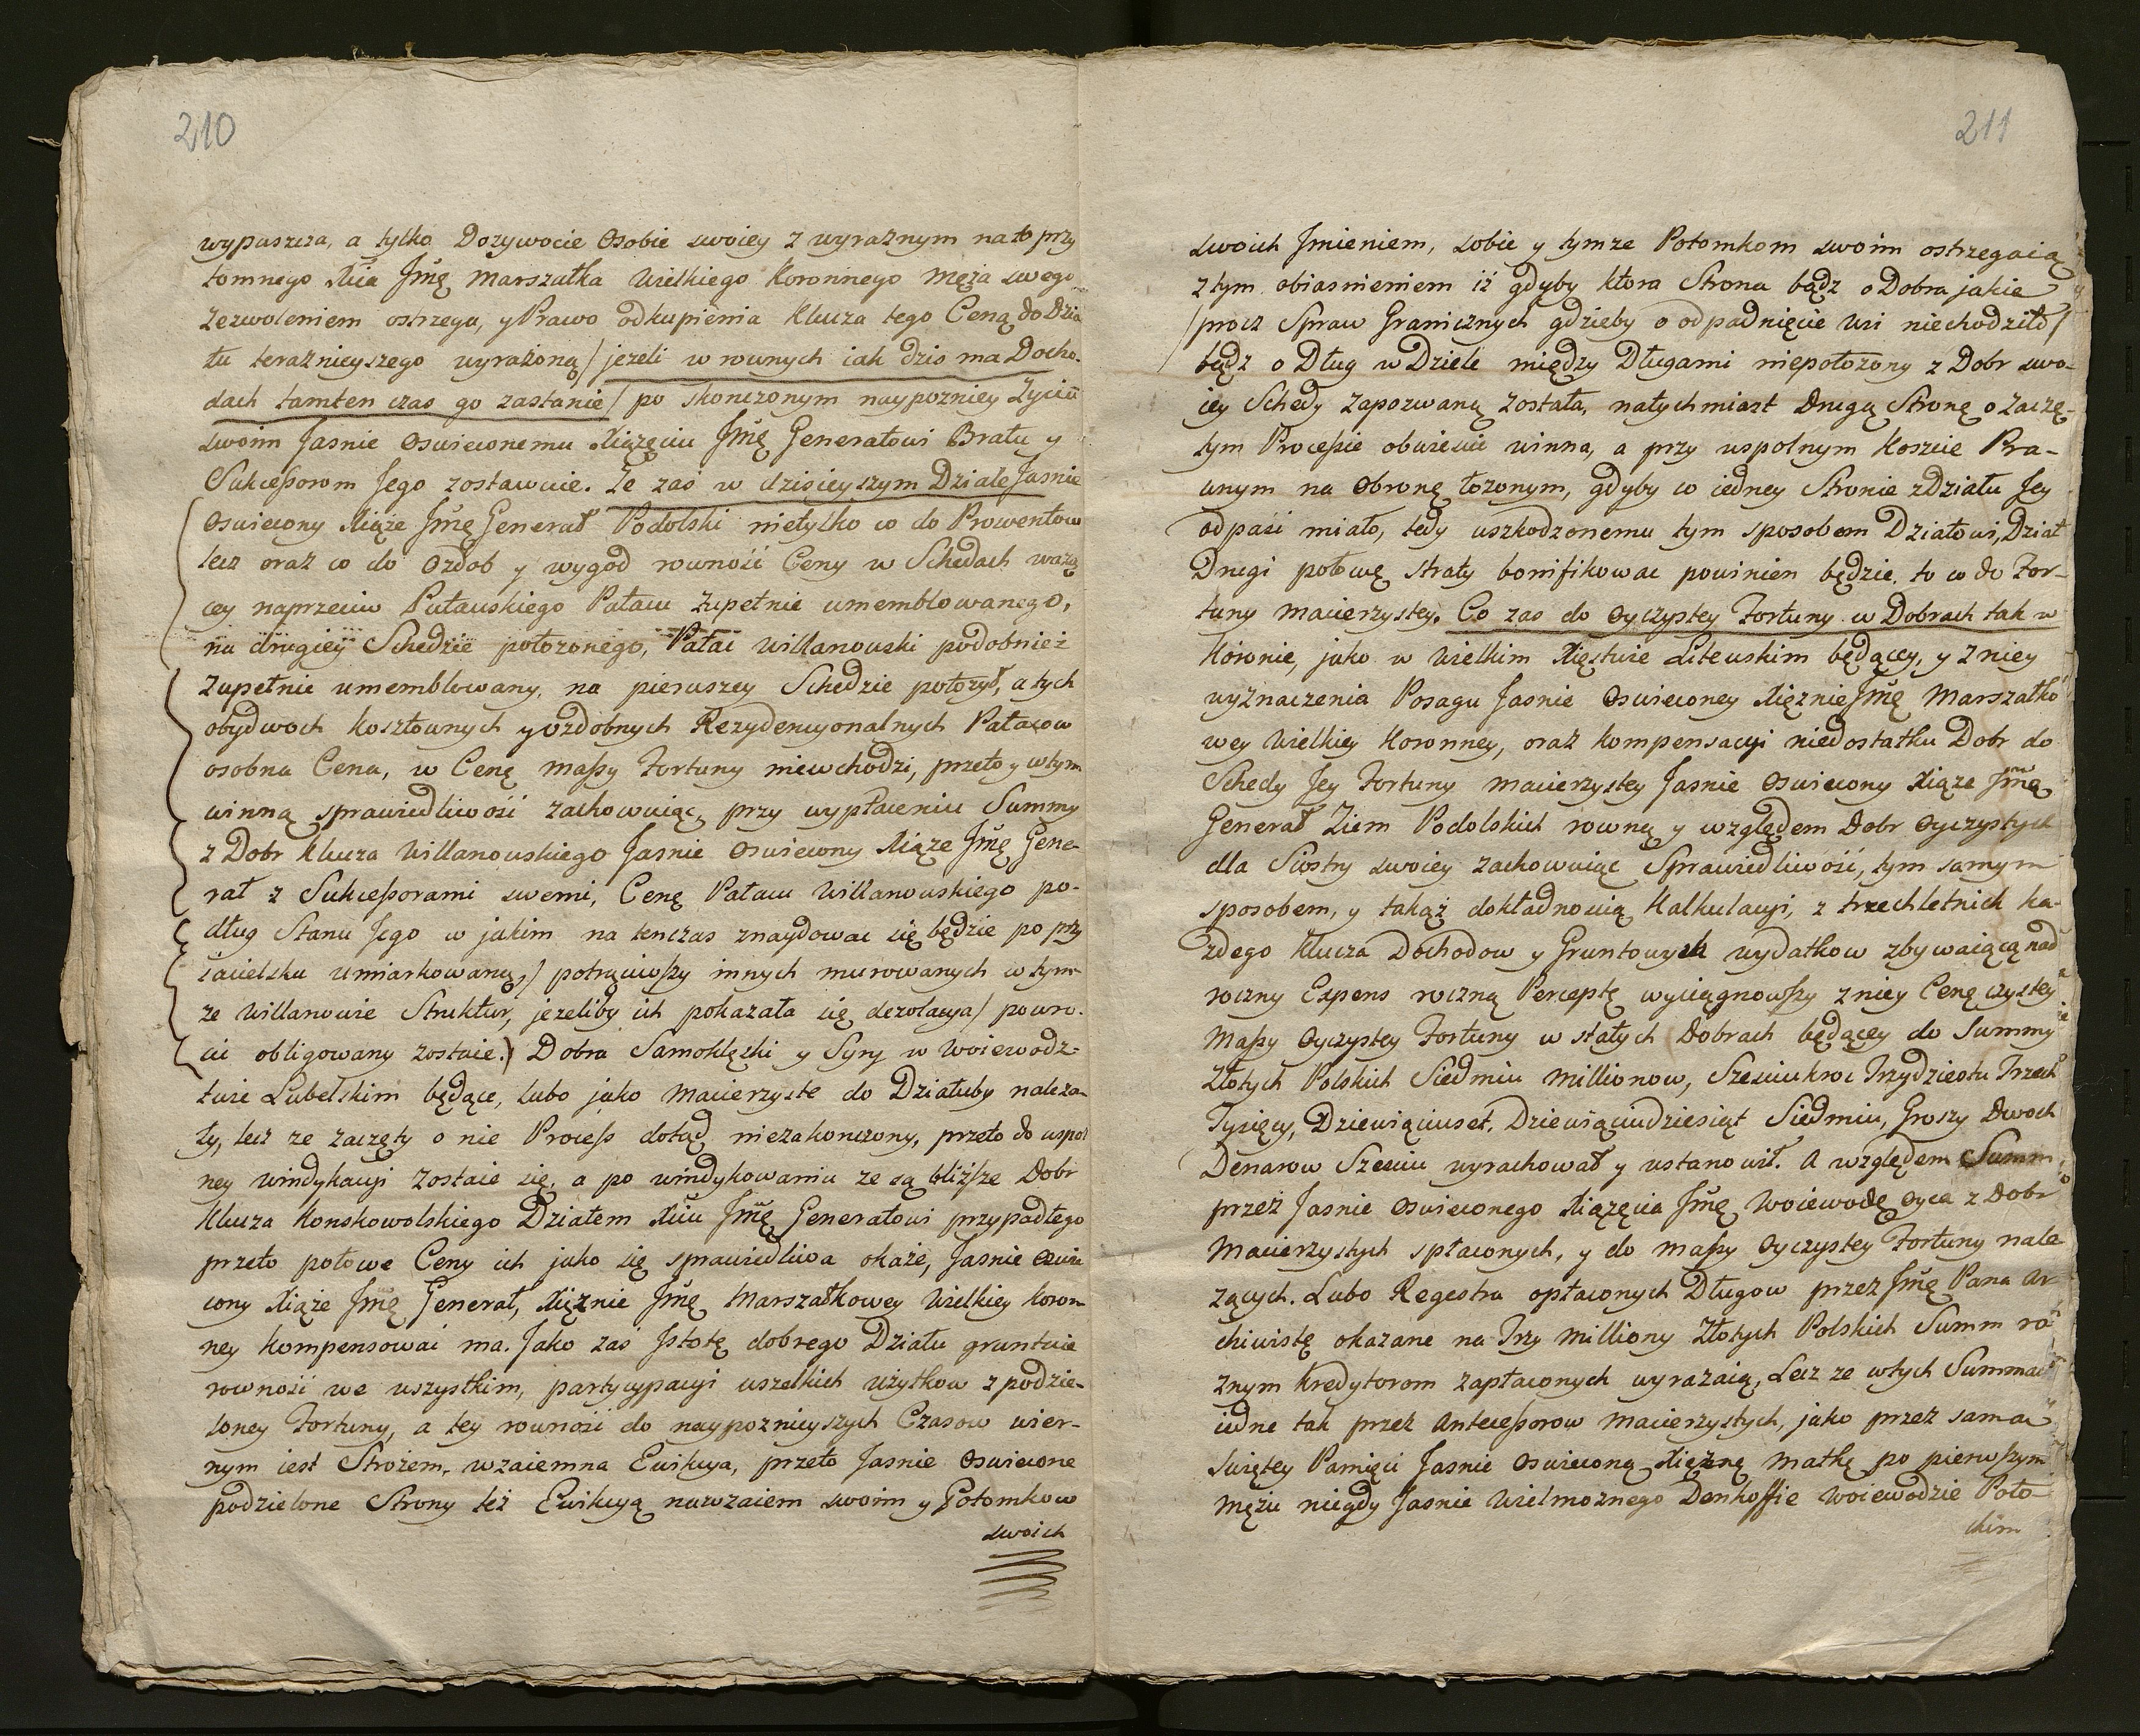 210
wypuszcza, a tylko Dozywocie Osobie swoiey z wyraznym na to przy
tomnego Xcia Jmę Marszałka Wielkiego Koronnego Męża swego
zezwoleniem ostrzega, y Prawo odkupienia Klucza tego Ceną do Dzia
łu teraznieyszego wyrażoną / jezeli w rownych iak dzis ma Docho-
dach tamten czas go zastanie / po skonczonym naypozniey Zyciu
swoim Jasnie Oswieconemu Xiązęciu Jmę Generałowi Bratu y
Sukcessorom Jego zostawuie. Ze zaś w dzisieyszym Dziale Jasnie
Oswiecony Xiąże Jmę Generał Podolski nietylko co do Prowentow
lecz oraz co do Ozdob y wygod rowność Ceny w Schedach ważą
cey naprzeciw Puławskiego Pałacu Zupełnie umemblowanego,
na drugiey Schedzie położonego, Pałac Willanowski podobnież
Zupełnie umemblowany, na pierwszey Schedzie połozył, a tych
obydwoch kosztownych y ozdobnych Rezydencyonalnych Pałacow
osobna Cena, w Cenę massy Fortuny niewchodzi, przeto y w tym
winną sprawiedliwość zachowuiąc, przy wypłaceniu Summy
z Dobr Klucza Willanowskiego Jasnie Oswiecony Xiąże Jmę Gene-
rał z Sukcessorami swemi, Cenę Pałacu Willanowskiego po-
dług Stanu Jego w jakim na tenczas znaydowac się będzie po przy
iacielsku umiarkowaną, / potrąciwszy innych murowanych w tym
ze Willanowie Struktur, jezeliby ich pokazała się dezolacya / powro-
cić obligowany zostaie.) Dobra Samoklęski y Syry w Woiewodz-
twie Lubelskim będące, lubo jako Macierzyste do Działuby nalezа-
ły, lecz ze zaczęty o nie Process dotąd niezakonczony, przeto do wspol
ney windykacyi zostaie się, a po windykowaniu ze są bliższe Dobr
Klucza Konskowolskiego Działem Xciu Jmę Generałowi przypadłego
przeto połowe Ceny ich jako się sprawiedliwa okaże, Jasnie Oswie
cony Xiąże Jmę Generał, Xięznie Jmę Marszałkowey Wielkiey Koron-
ney kompensować ma. Jako zaś Jstotę dobrego Działu gruntuie
rowność we wszystkim, partycypacyi wszelkich użytkow z podzie-
loney Fortuny, a tey rownośći do naypoznieyszych Czasow wier-
nym iest Strożem, wzaiemna Ewikcya, przeto Jasnie Oswiecone
podzielone Strony też Ewikcyą nawzaiem swoim y Potomkow
swoich
211
swoich Jmieniem, sobie y tymze Potomkom swoim ostrzegaią
z tym obiasnieniem iż gdyby ktora Strona bądz o Dobra jakie
/procz Spraw Granicznych gdzieby o odpadnięcie wsi niechodziło/
bądz o Dług w Dziele między Długami niepołozony z Dobr swo-
iey Schedy zapozwaną została, natychmiast drugą Stronę o zaczę-
tym Processie obwiescic winna, a przy wspolnym Koszcie Pra-
wnym na Obronę łozonym, gdyby co iedney Stronie z działu Jey
odpaść miało, tedy uszkodzonemu tym sposobem Działowi, Dział
Drugi połowę straty bonifikowac powinien będzie. to co do For-
tuny Macierzystey. Co zas do Oyczystey Fortuny w Dobrach tak w
Koronie, jako w Wielkim Xięstwie Litewskim będącey, y z niey
wyznaczenia Posagu Jasnie Oswieconey Xięznie Jmę Marszałko
wey Wielkiey Koronney, oraz kompensacyi niedostatku Dobr do
Schedy Jey Fortuny Macierzystey Jasnie Oswiecony Xiąze Jmę
Generał Ziem Podolskich rowną y względem Dobr Oyczystych
dla Siostry swoiey zachowuiąc Sprawiedliwość, tym samym
sposobem, y takąż dokładnoscią Kalkulacyi, z trzechletnich ka-
zdego Klucza Dochodow y Gruntowych wydatkow zbywaiącą nad
roczny Expens roczną Perceptę wyciągnowszy z niey Cenę czystey
Massy Oyczystey Fortuny w stałych Dobrach będącey do Summy
Złotych Polskich Siedmiu Millionow, Szesciukroc Trzydziestu Trzech
Tysięcy, Dziewiąciuset, Dziewiąciudziesiąt Siedmiu, Groszy Dwoch
Denarow Szesciu wyrachował y ustanowił. A względem Summ
przez Jasnie Oswieconego Xiązęcia Jmę Woiewodę Oyca z Dobr
Macierzystych spłaconych, y do massy Oyczystey Fortuny nale
zących. Lubo Regestra opłaconych Długow przez Jmę Pana Ar-
chiwistę okazane na Trzy Milliony Złotych Polskich Summ ro-
znym Kredytorom zapłaconych wyrażaią, Lecz ze w tych Summach
iedne tak przez Antecessorow Macierzystych, jako przez samą
Swiętey Pamięci Jasnie Oswieconą Xięznę Matkę po pierwszym
Mężu niegdy Jasnie Wielmoznego Denhoffie Woiewodzie Poło-
ckim